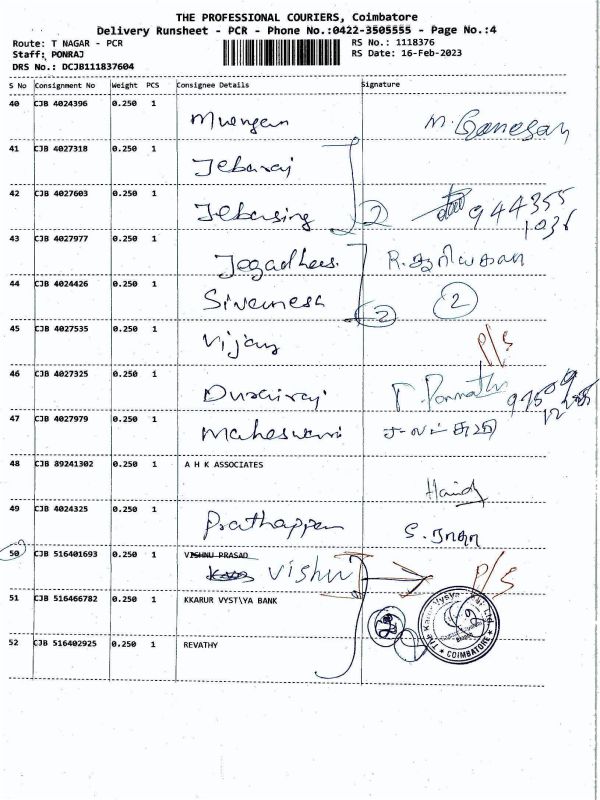 THE PROFESSIONAL COURIERS, Coimbatore
Delivery Runsheet - PCR - Phone No.:0422-3505555 - Page No.:4
Route: T NAGAR - PCR RS No.: 1118376
Staff: PONRAJ RS Date: 16-Feb-2023
DRS No.: DCJB111837604
S No Consignment No Weight PCS Consignee Details Signature
40 CJB 4024396 0.250 1
Murugan M. Ganesan
41 CJB 4027318 0.250 1
Jebaraj
42 CJB 4027603 0.250 1
Jebasing 2 944355
1036
43 CJB 4027977 0.250 1
Jegadhees.
44 CJB 4024426 0.250 1
Sivamesh 2 2
45 CJB 4027535 0.250 1
Vijay P/S
46 CJB 4027325 0.250 1
Durairaj
47 CJB 4027979 0.250 1
Maheswari
48 CJB 89241302 0.250 1 A H K ASSOCIATES
49 CJB 4024325 0.250 1
Prathappan
50 CJB 516401693 0.250 1 VISHNU PRASAD
Vishnu P/S
51 CJB 516466782 0.250 1 KKARUR VYST\YA BANK
52 CJB 516402925 0.250 1 REVATHY
COIMBATORE